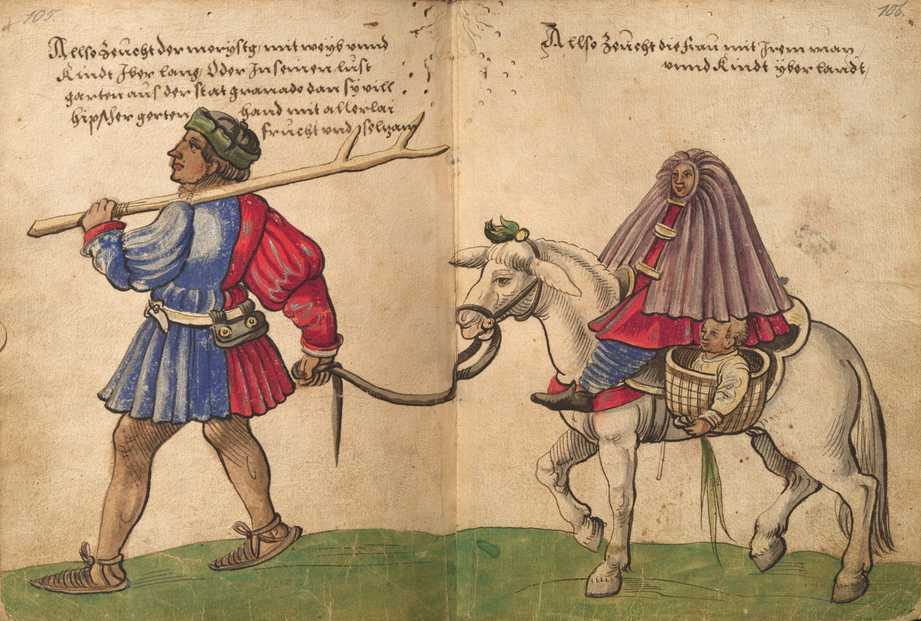 105.
Allso Zeücht der morystg mit weyb vnnd
Kindt Jber lang, Oder In seinen lust
garten aus der stat granado dan sy vill
hipscher gerten hand mit allerlai
frücht vnd selzam
106.
Allso Zeücht die frau mit Jrem man,
vnnd Kindt yber landt,